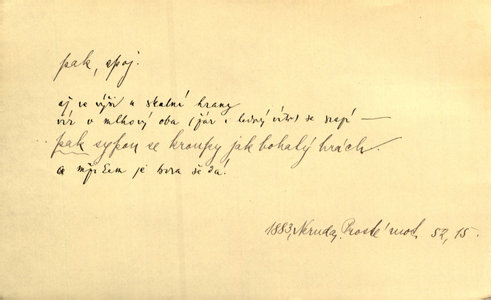 pak, spoj.
až ve výši u skalní hrany
vír v mlhový oba (jár i ledný vítr) se vrapí —
pak sypou se kroupy jak bohatý hrách
a mžikem je hora šedá!
1883, Neruda, Prosté mot. 52, 15.